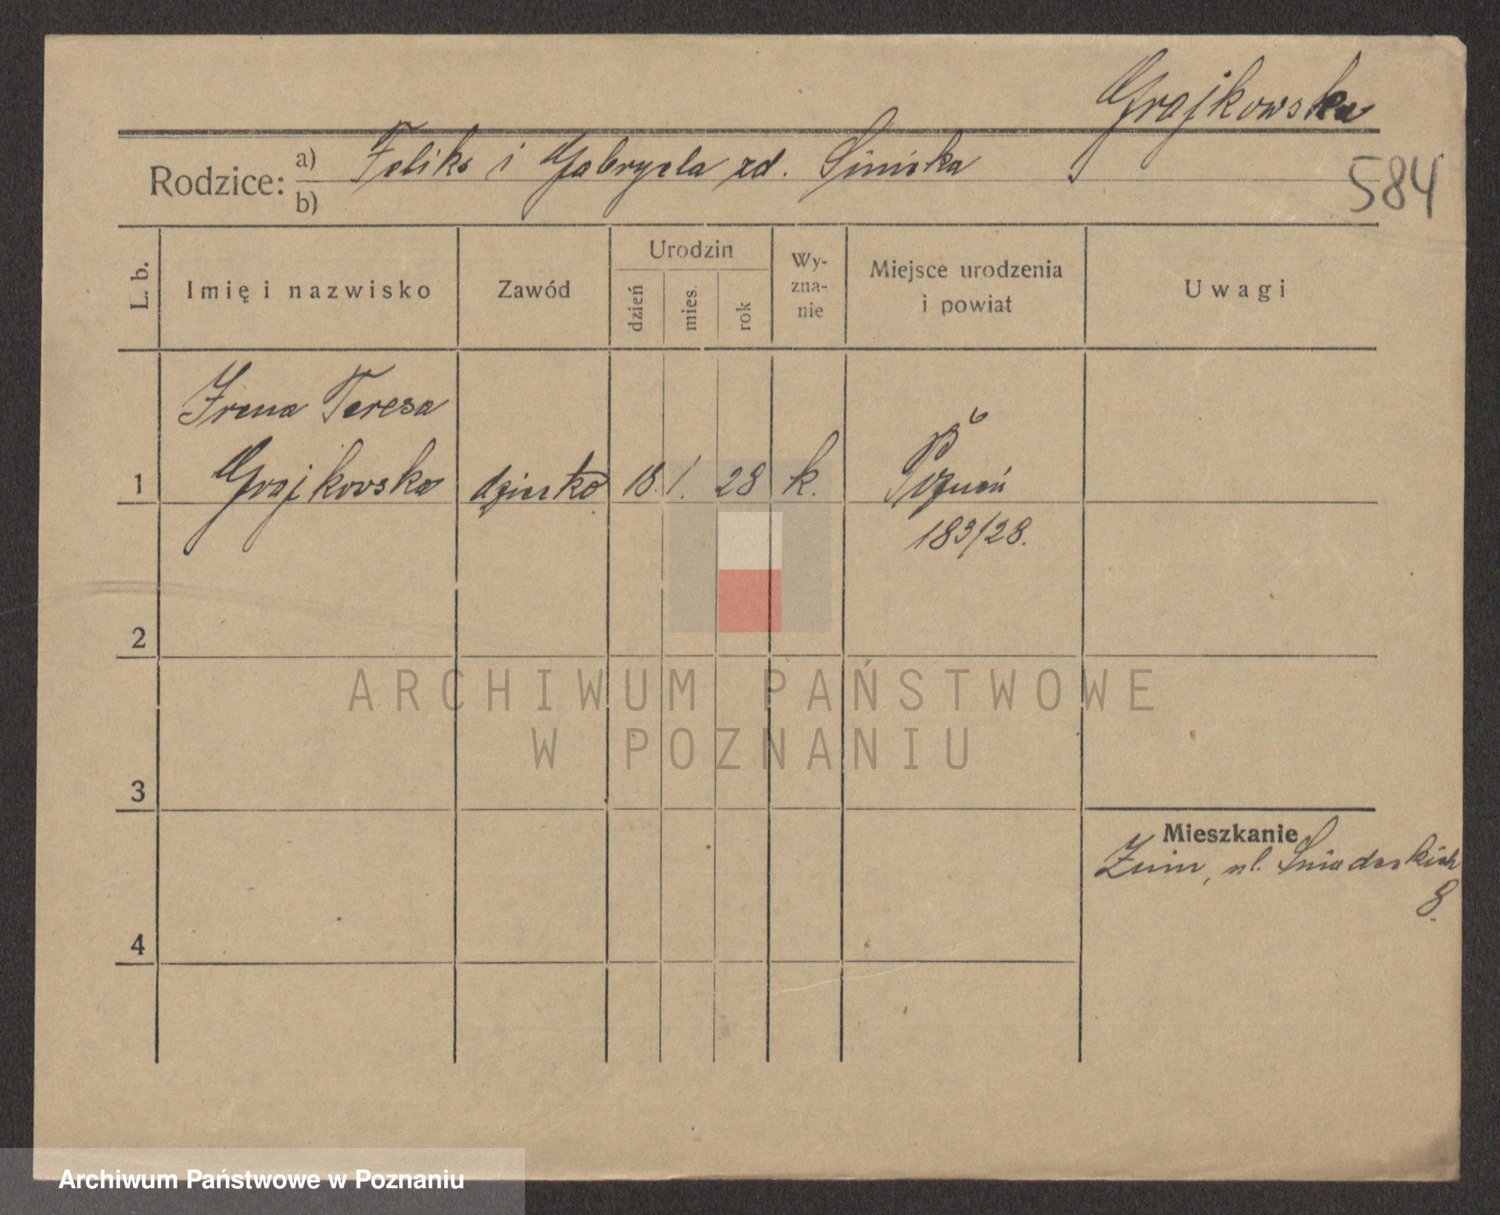 Grajkowska
Rodzice: a) Feliks i Gabryela zd. Siniska
b)
584
L. b.
Imię i nazwisko
Zawód
Urodzin
dzień
mies.
rok
Wy-
zna-
nie
Miejsce urodzenia
i powiat
Uwagi
Irena Teresa
1 Grajkowska dziecko 18. 1. 28 k. Poznań
183/28.
2
ARCHIWUM PAŃSTWOWE
W POZNANIU
3
Mieszkanie
Żnin, ul. Śniadeckich
8.
4
Archiwum Państwowe w Poznaniu